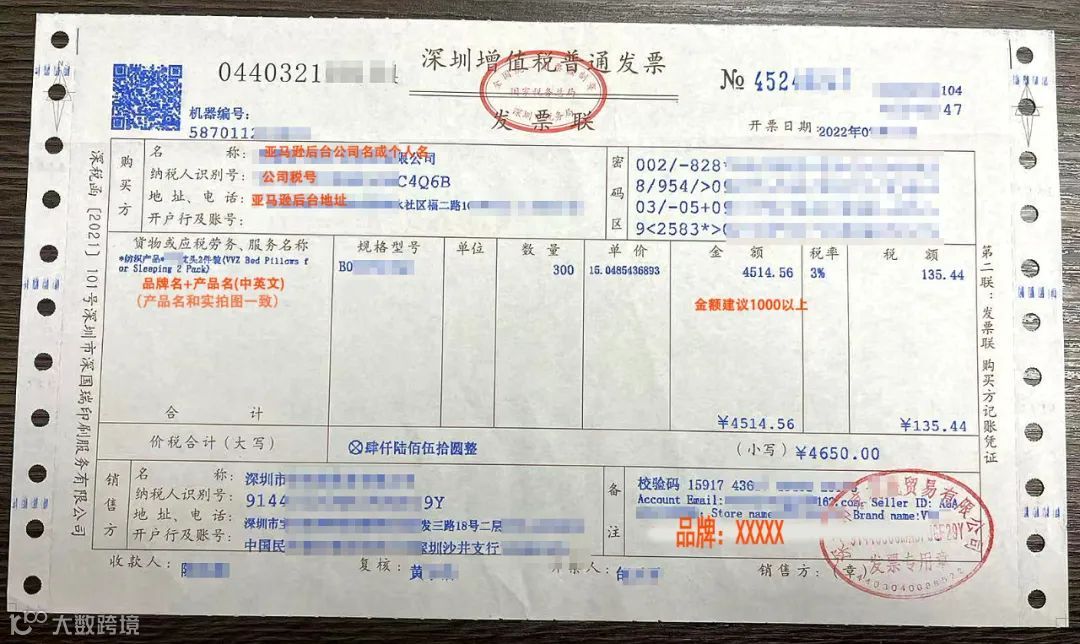 0440321
深圳增值税普通发票
发票联
国家税务总局
№ 4524
104
47
机器编号:
5870112
开票日期
2022年0
深税函 [2021] 101号深圳市深国瑞印刷服务有限公司
购买方
名 称: 亚马逊后台公司名或个人名
限公司
纳税人识别号: 公司税号 C4Q6B
地址、电话: 亚马逊后台地址 社区福二路10
开户行及账号:
密码区
002/-828*
8/954/>09
03/-05+09
9<2583*>0
货物或应税劳务、服务名称 规格型号 单位 数量 单价 金额 税率 税额
*纺织产品* 枕头2件装(VVZ Bed Pillows f
or Sleeping 2 Pack)
B0 300 15.0485436893 4514.56 3% 135.44
品牌名+产品名(中英文)
(产品名和实拍图一致)
金额建议1000以上
合计 ¥4514.56 ¥135.44
价税合计(大写) ⊗肆仟陆佰伍拾圆整 (小写) ¥4650.00
第二联:发票联 购买方记账凭证
销售方
名 称: 深圳市
纳税人识别号: 9144 9Y
地址、电话: 深圳市宝 发三路18号二层
开户行及账号: 中国民 深圳沙井支行
备注
校验码 15917 436
Account Email: 162.com Seller ID: A
.Store name Brand name:V
品牌: XXXXX
贸易有限公司
发票专用章
收款人: 复核: 黄 开票人: 销售方: (章)
大数跨境